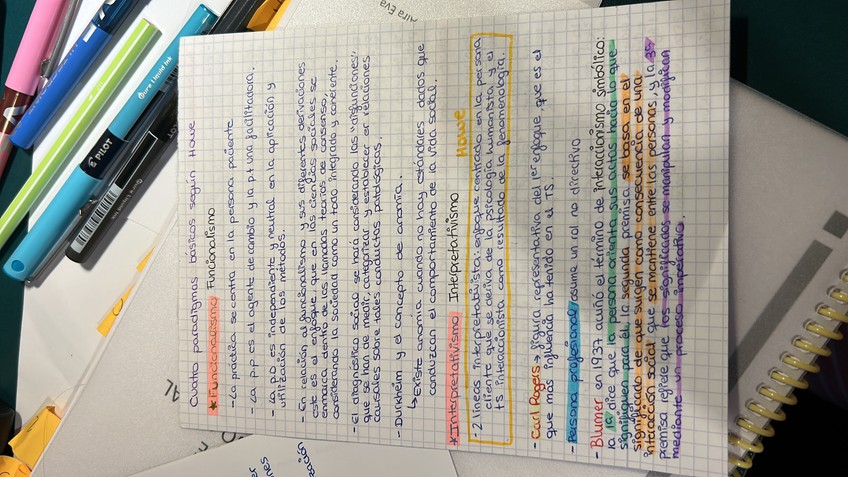 Cuatro paradigmas básicos según Howe
*Funcionalismo Funcionalismo
- La práctica se centra en la persona paciente
- La p.p es el agente de cambio y la p.t una facilitadora.
- La p.o es independiente y neutral en la aplicación y
utilización de los métodos.
- En relación al funcionalismo y sus diferentes derivaciones
este es el enfoque, que en las ciencias sociales se
enmarca dentro de las llamadas teorías de consenso,
considerando la sociedad como un todo integrado y coherente.
- El diagnóstico social se hará considerando las "disfunciones",
que se han de medir, categorizar y establecer en relaciones
causales sobre tales conductas patológicas.
- Durkheim y el concepto de anomia.
↳ Existe anomia cuando no hay estándares dados que
conduzcan el comportamiento de la vida social.
*Interpretativismo Interpretativismo Howe
- 2 líneas interpretativista: enfoque centrado en la persona
cliente que se deriva de la psicología humanista y el
ts interaccionista como resultado de la fenomenología.
- Carl Rogers → figura representativa del 1er enfoque, que es el
que más influencia ha tenido en el TS.
- Persona profesional asume un rol no directivo
- Blumer en 1937 acuñó el termino de interaccionismo simbólico:
la 1ª dice que la persona orienta sus actos hacia lo que
significan para él, la segunda premisa se basa en el
significado de que surgen como consecuencia de una
interacción social que se mantiene entre las personas, y la 3ª
premisa refiede que los significados se manipulan y modifican
mediante un proceso imperativo.
PILOT
Pure Liquid Ink
Aira Eva
AL